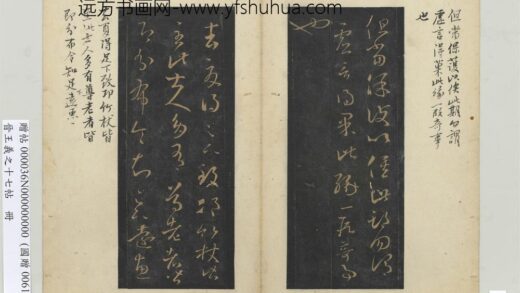 远方书画网- www.yfshuhua.com
但當保護以俟此期勿謂
虛言得果此緣一段奇事
也
但當保護以俟此期勿謂
虛言得果此緣一段奇事
也
去夏得足下致邛竹杖皆
至此士人多有尊老者皆
即分布令知足下遠惠
去夏得足下致邛竹杖皆
至此士人多有尊老者皆
即分布令知足下遠惠
贈帖 000036N000000000 (國贈 0061
晉王羲之十七帖 冊